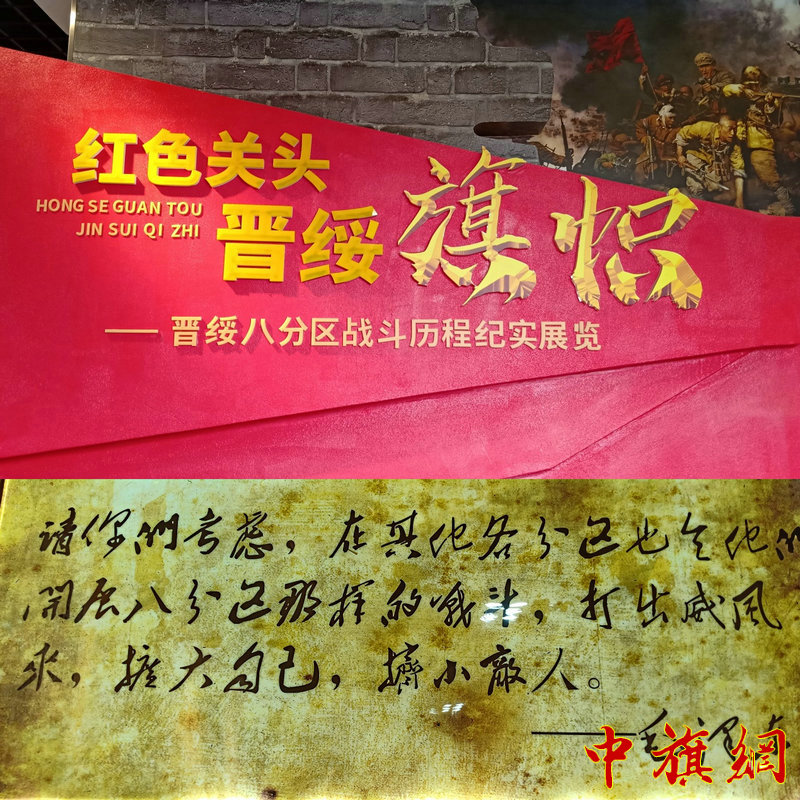 红色关头
HONG SE GUAN TOU
JIN SUI QI ZHI
晋绥旗帜
——晋绥八分区战斗历程纪实展览
请你們考慮，在其他各分区也令他们
開展八分区那样的戰斗，打出威风
来，擴大自己，擠小敵人。
——毛泽东
中旗網